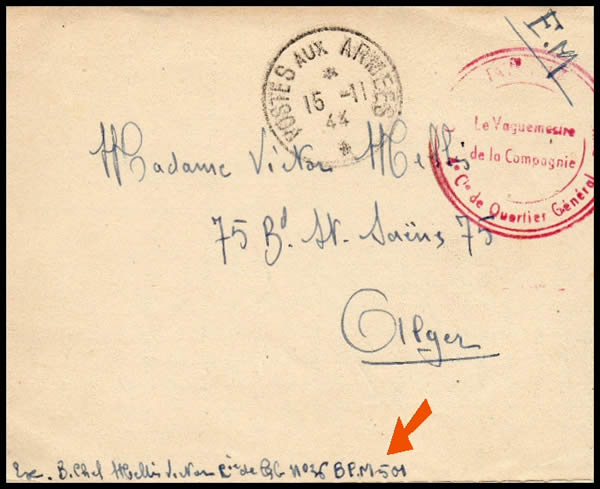 E.M
POSTES AUX ARMEES
15-11
44
Le Vaguemestre
de la Compagnie
Cie de Quartier Général
Madame Victor Mellis
75 Bd. St. Saëns 75
Alger
Exp. Mellis Victor de QG n°36 B.P.M 501